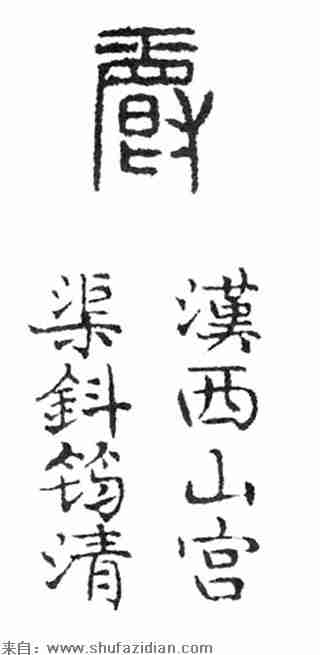 漢西山宫
渠鈄筠清
来自：www.shufazidian.com